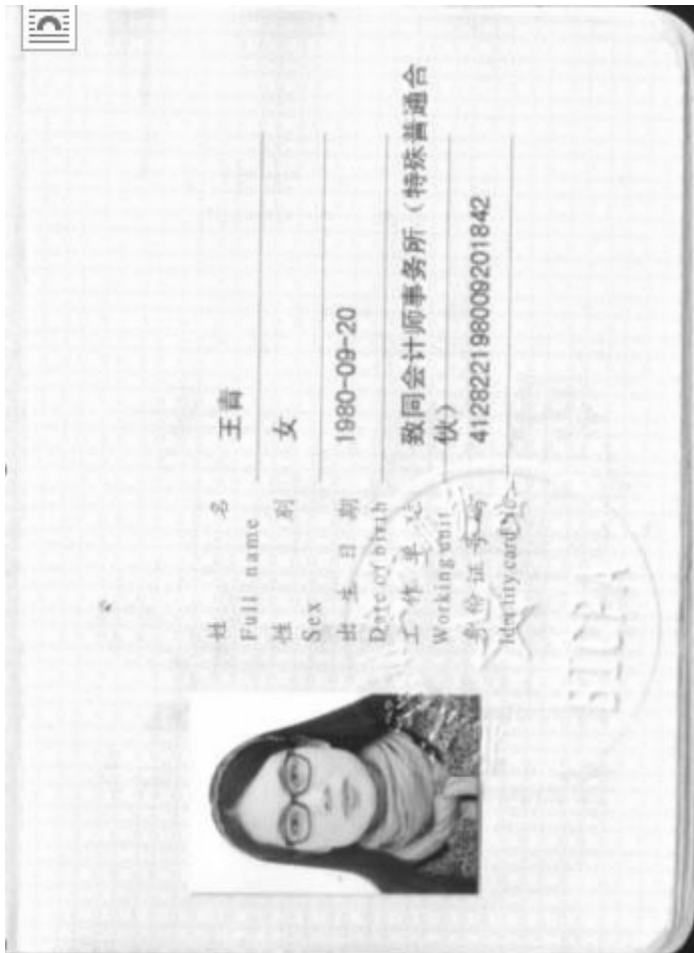 姓 名 王青
Full name
性 别 女
Sex
出 生 日 期 1980-09-20
Date of birth
工 作 单 位 致同会计师事务所（特殊普通合
Working unit 伙）
身份证号码 412822198009201842
Identity card No.